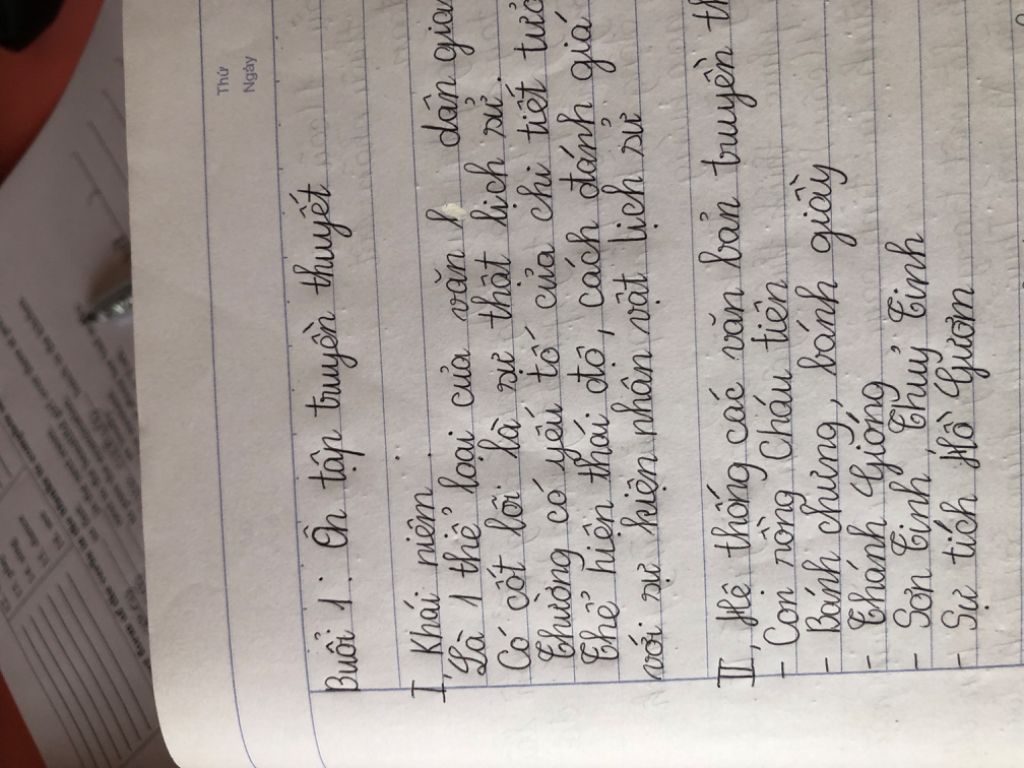 Thứ
Ngày
Buổi 1: Ôn tập truyền thuyết
I, Khái niệm
Là 1 thể loại của văn h dân gian
Có cốt lõi là sự thật lịch sử.
Thường có yếu tố của chi tiết tưở
Thể hiện thái độ, cách đánh giá
với sự kiện nhân vật lịch sử
II, Hệ thống các văn bản truyền th
- Con rồng cháu tiên
- Bánh chưng, bánh giầy
- Thánh Gióng
- Sơn Tinh, Thuỷ Tinh
- Sự tích Hồ Gươm